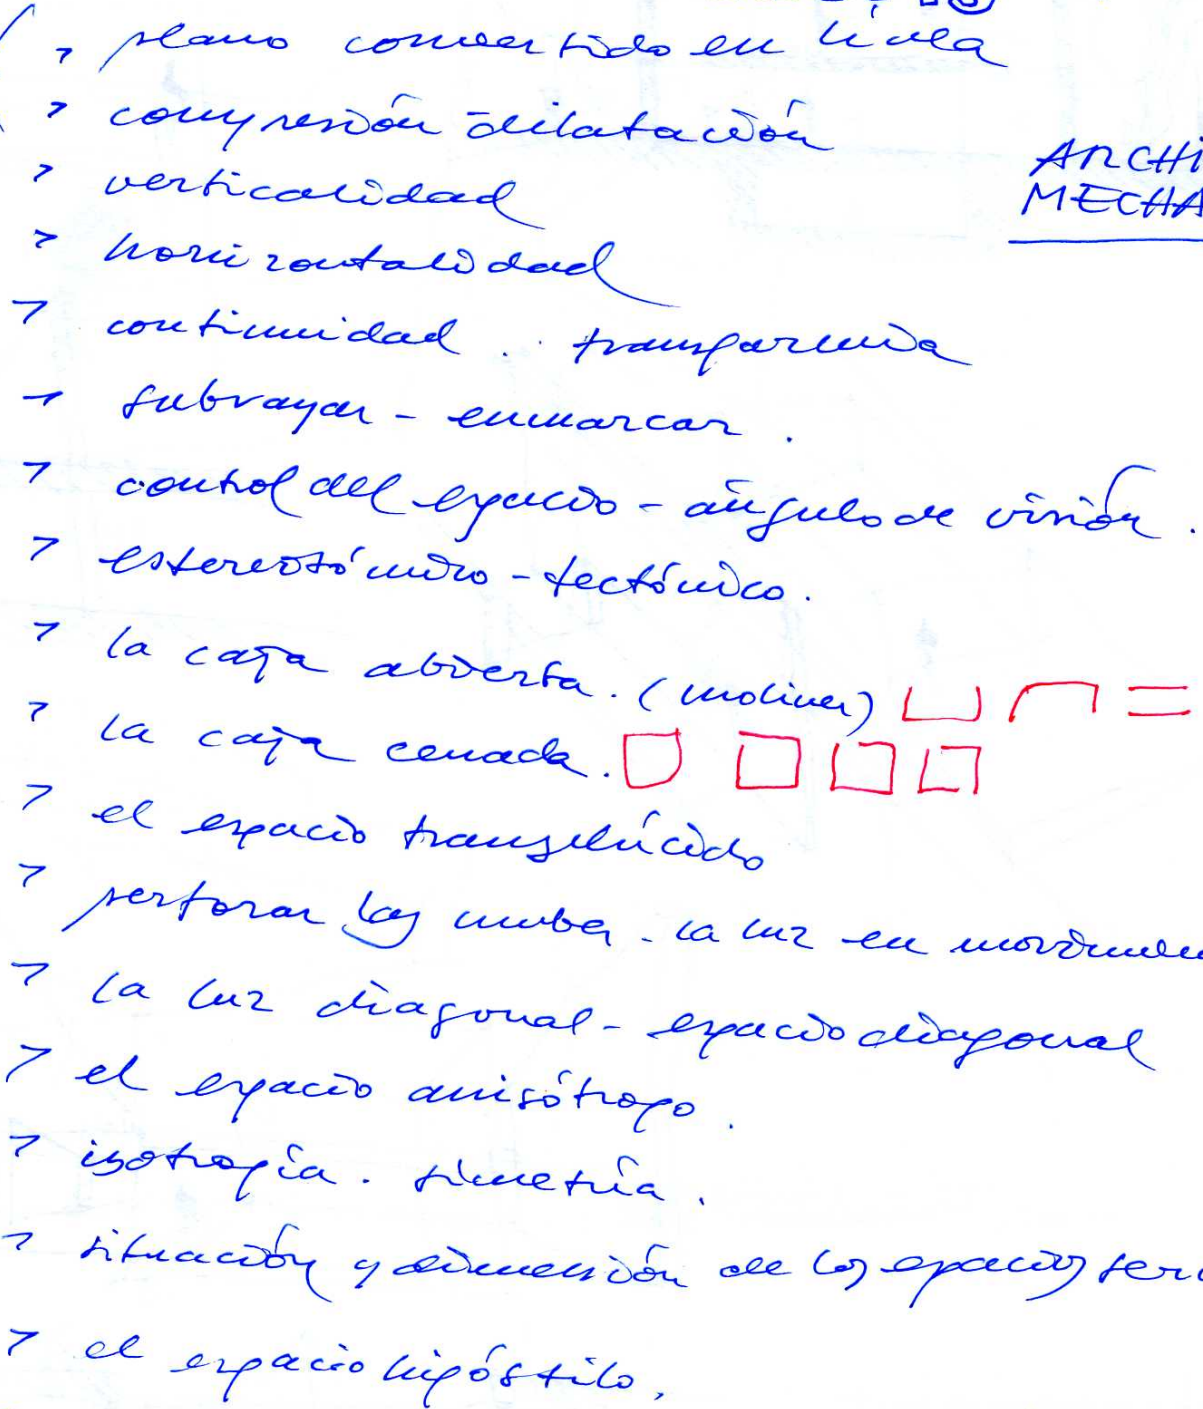 > plano convertido en línea
> compresión - dilatación
ARCHI
MECHA
> verticalidad
> horizontalidad
> continuidad . . transparencia
> subrayar - enmarcar .
> control del espacio - ángulo de visión .
> estereotómico - tectónico .
> la caja abierta . (moliner)
> la caja cerrada .
> el espacio translúcido
> perforar las nubes - la luz en movimien
> la luz diagonal - espacio diagonal
> el espacio anisótropo .
> isotropía . simetría .
> situación y dimensión de los espacios ser
> el espacio hipóstilo .